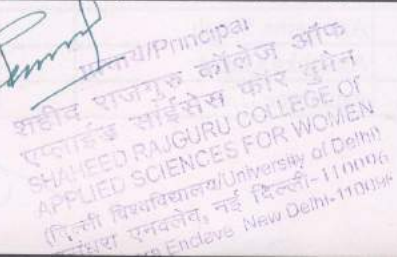 प्राचार्य/Principal
शहीद राजगुरु कॉलेज ऑफ
एप्लाईड साईंसेस फॉर वुमेन
SHAHEED RAJGURU COLLEGE OF
APPLIED SCIENCES FOR WOMEN
(दिल्ली विश्वविद्यालय/University of Delhi)
एनक्लेव, नई दिल्ली-110096
Enclave New Delhi-110096